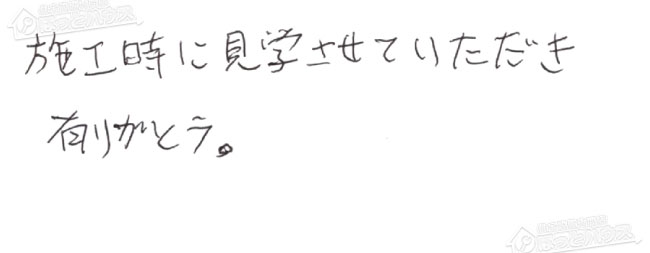 施工時に見学させていただき
有りがとう。